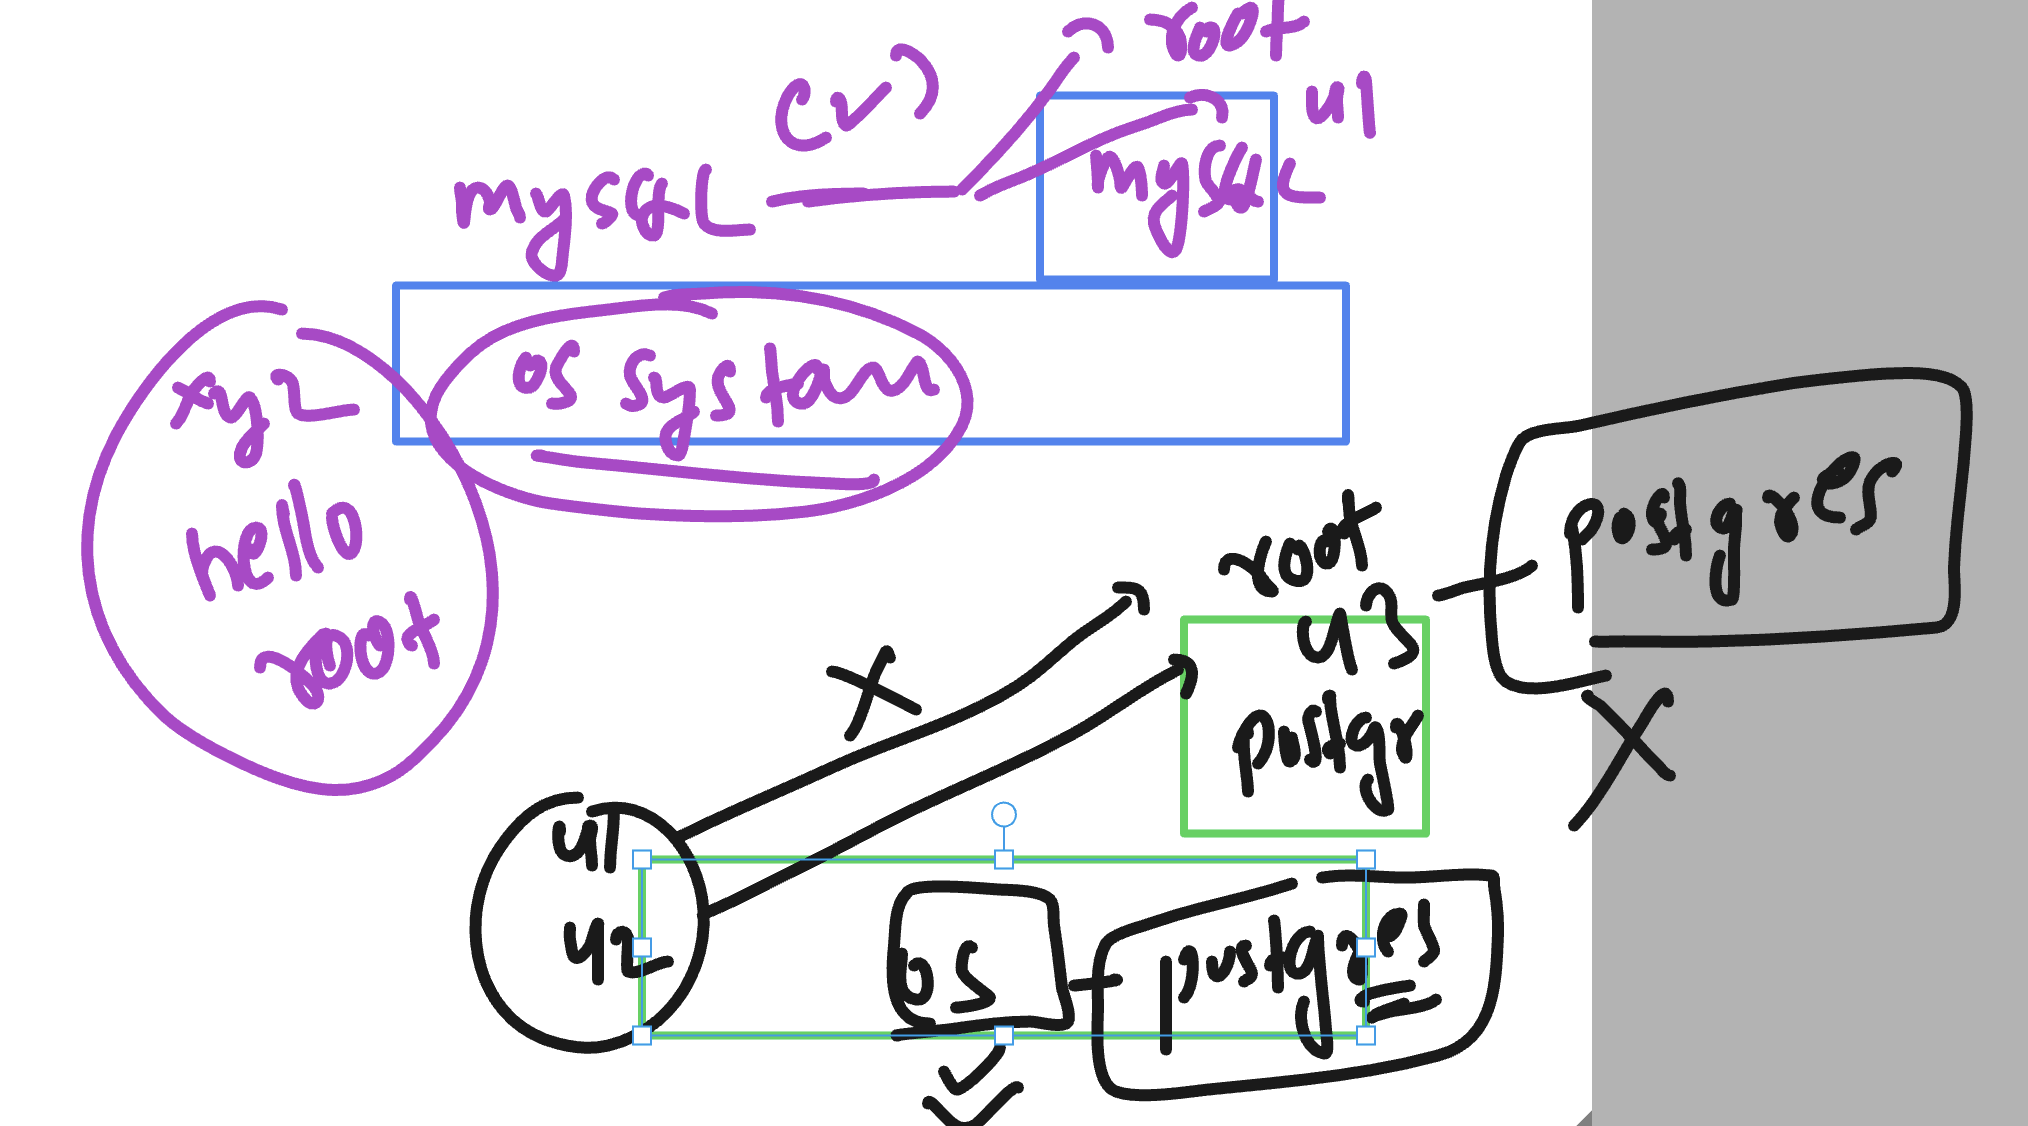 root
u1
(✓)
mysQL
mysQL
os systam
xyz
hello
root
postgres
root
u3
postgr
X
X
u1
u2
os
postgres